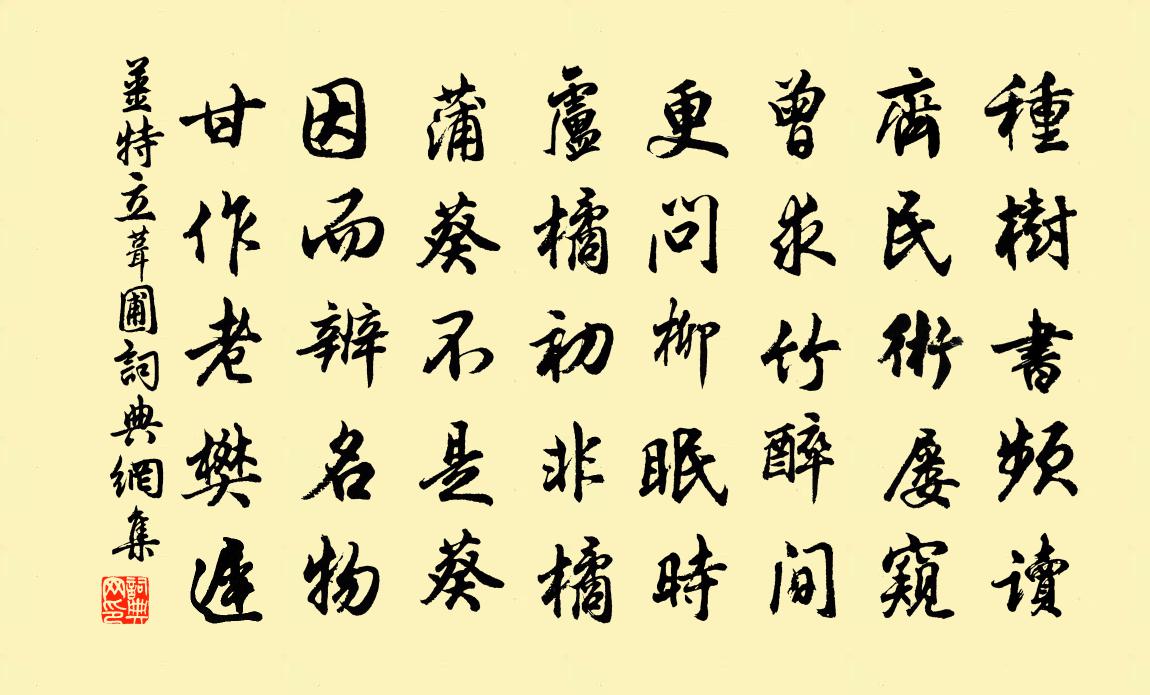 種樹書頻讀
齊民術屢窺
曾求竹醉間
更問柳眠時
盧橘初非橘
蒲葵不是葵
因而辨名物
甘作老樊遲
姜特立葺圃詞典網集
詞典網印